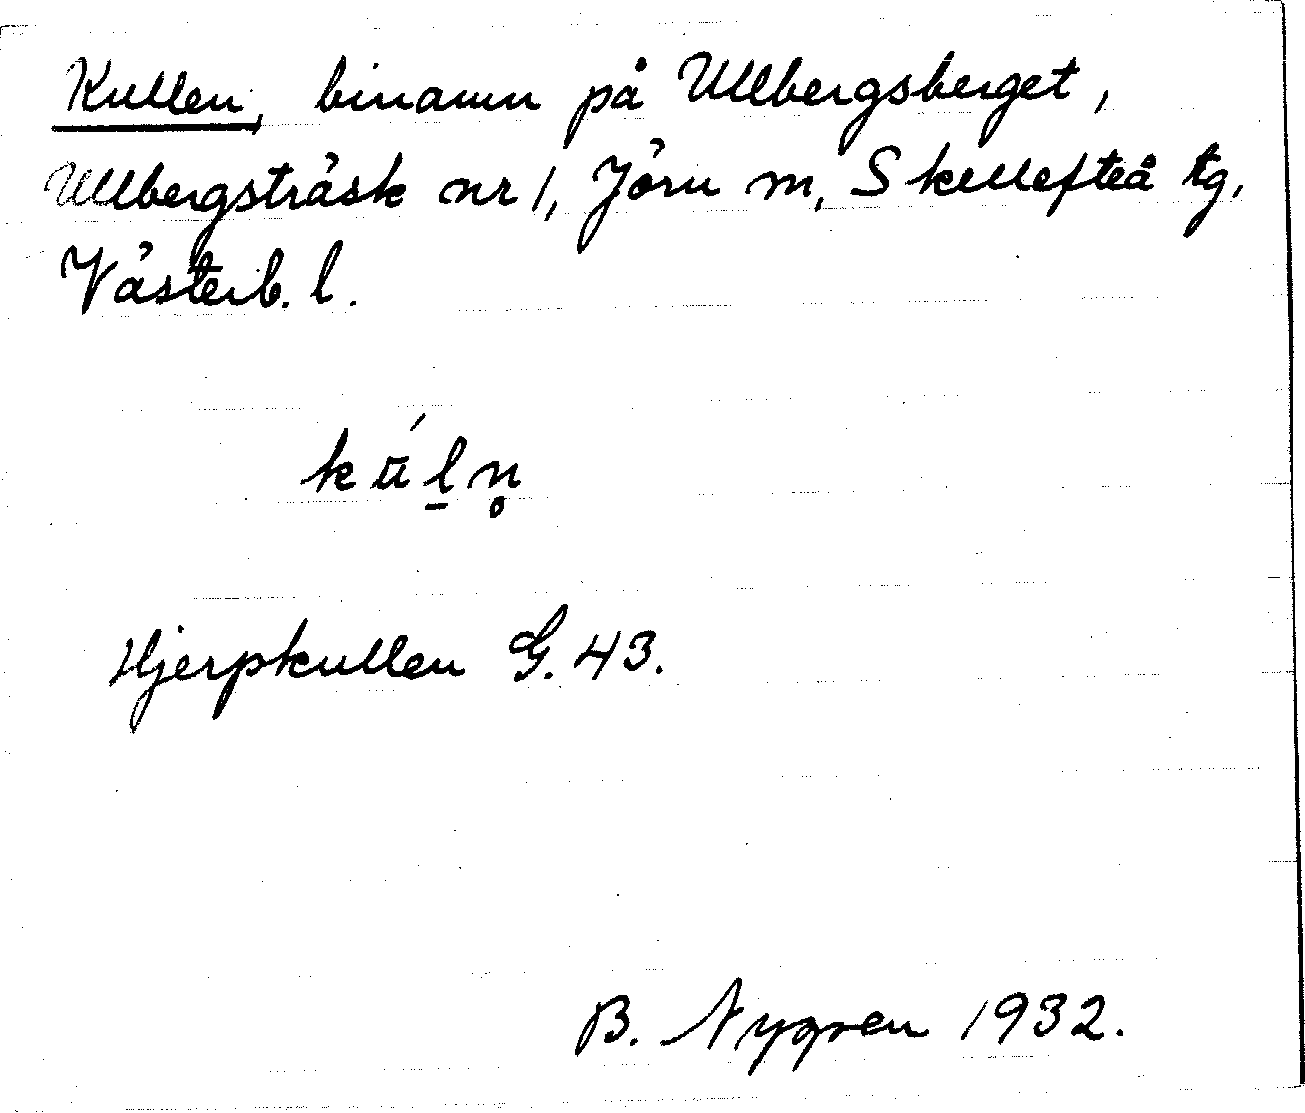 Kullen, binamn på Ullbergsberget,
Ullbergsträsk nr 1, Jörn m, Skellefteå tg,
Västerb. l.
kú̄l̠n̥
Hjerpkullen G. 43.
B. Nygren 1932.